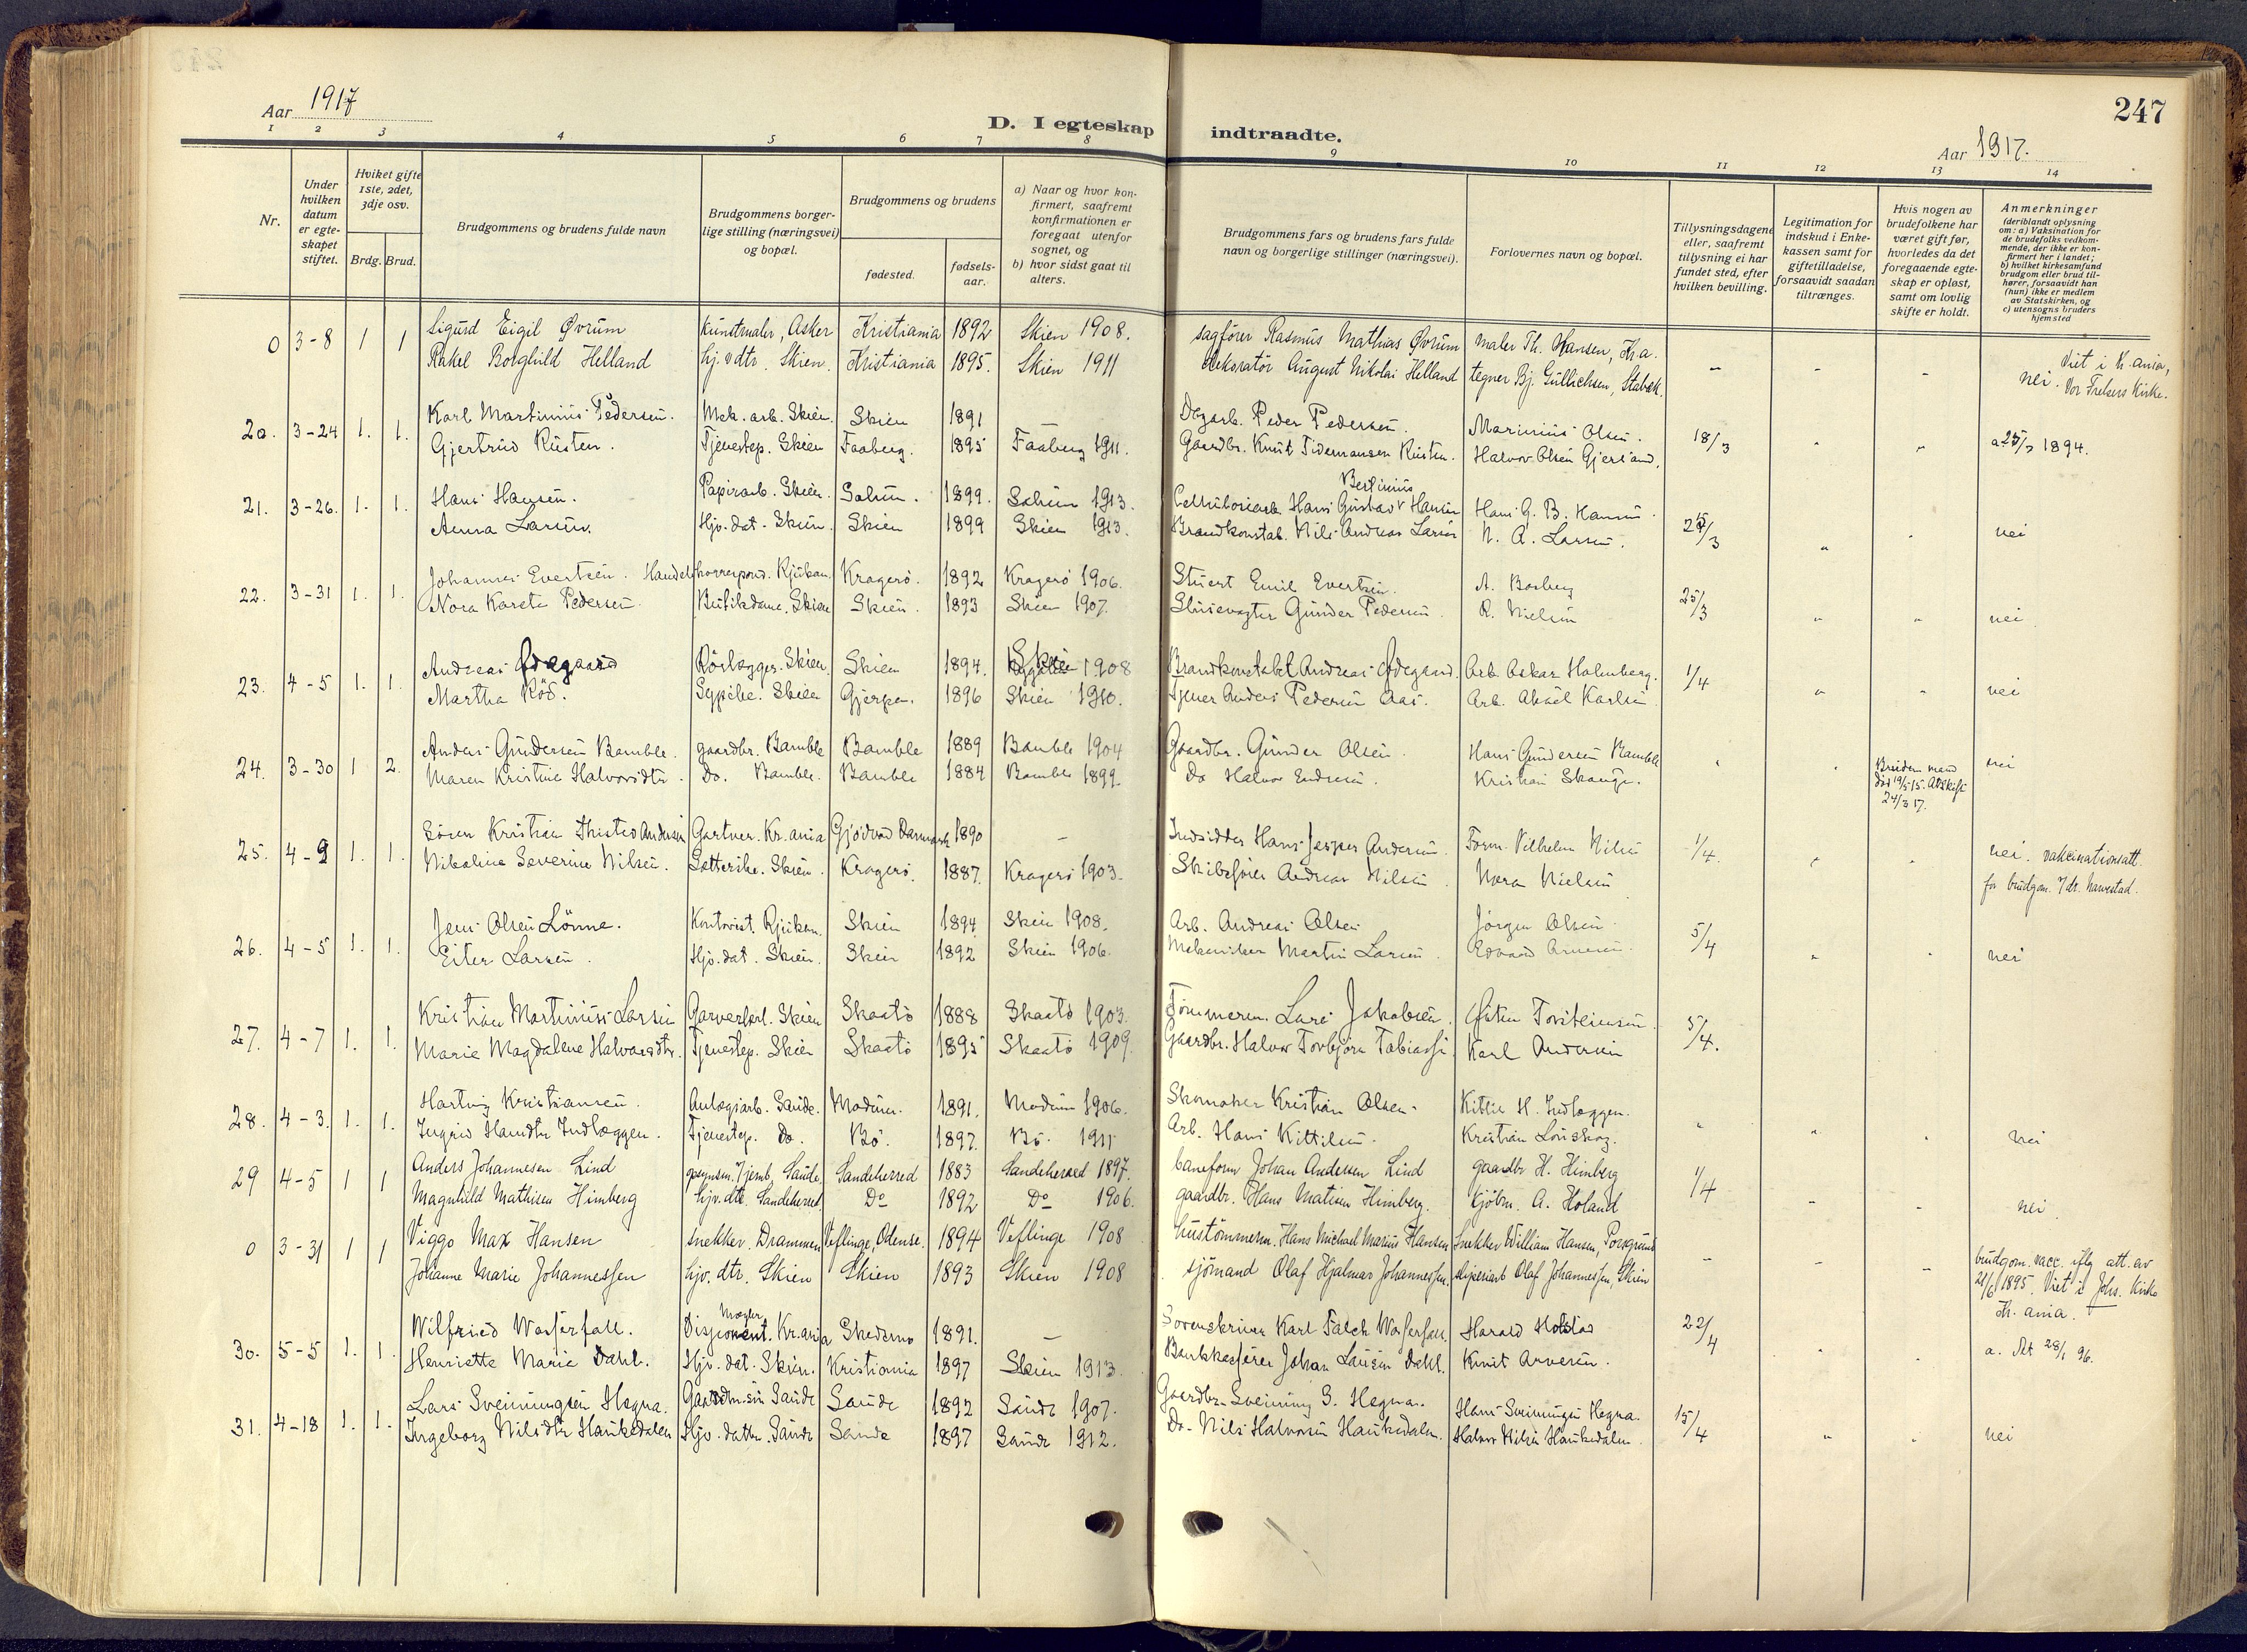 247
Aar 1917
D. I egteskap indtraadte.
Aar 1917.
1 2 3 4 5 6 7 8 9 10 11 12 13 14
Nr.
Under hvilken datum er egteskapet stiftet.
Hviket gifte 1ste, 2det, 3dje osv.
Brdg. Brud.
Brudgommens og brudens fulde navn
Brudgommens borgerlige stilling (næringsvei) og bopæl.
Brudgommens og brudens
fødested.
fødselsaar.
a) Naar og hvor konfirmert, saafremt konfirmationen er foregaat utenfor sognet, og
b) hvor sidst gaat til alters.
Brudgommens fars og brudens fars fulde navn og borgerlige stillinger (næringsvei).
Forlovernes navn og bopæl.
Tillysningsdagene eller, saafremt tillysning ei har fundet sted, efter hvilken bevilling.
Legitimation for indskud i Enkekassen samt for giftetilladelse, forsaavidt saadan tiltrænges.
Hvis nogen av brudefolkene har været gift før, hvorledes da det foregaaende egteskap er opløst, samt om lovlig skifte er holdt.
Anmerkninger (deriblandt oplysning om: a) Vaksination for de brudefolks vedkommende, der ikke er konfirmert her i landet; b) hvilket kirkesamfund brudgom eller brud tilhører, forsaavidt han (hun) ikke er medlem av Statskirken, og c) utensogns bruders hjemsted
0 3-8 1 1 Sigurd Eigil Øvrum kunstmaler, Asker Kristiania 1892 Skien 1908. sagfører Rasmus Mathias Øvrum maler Th. Hansen, Kr.a. - - - Viet i K.ania,
Rakel Borghild Helland hj.v dtr. Skien. Kristiania 1895. Skien 1911 dekoratør August Nikolai Helland tegner Bj. Gullichsen, Stabæk. nei. Vor Frelsers Kirke.
20. 3-24 1. 1. Karl Martinius Pedersen. Mek. arb. Skien. Skien 1891 Dagarb. Peder Pedersen. Marinius Olsen. 18/3
Gjertrud Rusten. Tjenestep. Skien Faaberg. 1895 Faaberg 1911. Gaardbr. Knut Tidemansen Rusten. Halvor Olsen Gjerland. a 25/7 1894.
21. 3-26. 1. 1. Hans Hansen. Papirarb. Skien. Solum. 1899. Solum 1913. Cellulosearb. Hans Gustav Bertinius Hansen Hans G. B. Hansen. 25/3 nei
Anna Larsen. Hjv. dat. Skien. Skien 1899 Skien 1913. Brandkonstab. Nils Andreas Larsen N. A. Larsen.
22. 3-31 1. 1. Johannes Evertsen. Handelskorrespond. Rjukan. Kragerö. 1892 Kragerö 1906. Stuert Emil Evertsen. A. Borberg 25/3 nei
Nora Karete Pedersen Butikdame. Skien Skien. 1893 Skien 1907. Slusevogter Gunder Pedersen. R. Nielsen
23. 4-5 1. 1. Andreas Ødegaard Rörlægger. Skien. Skien 1894. Skien 1908 Brandkonstabel Andreas Ødegaard. Arb. Oskar Holmberg. 1/4 nei
Martha Röd. Sypike. Skien Gjerpen. 1896 Skien 1910. Tjener Anders Pedersen Aas. Arb. Aksel Karlsen
24. 3-30 1 2. Anders Gundersen Bamble. gaardbr. Bamble Bamble 1889 Bamble 1904 Gaardbr. Gunder Olsen. Hans Gundersen Bamble nei
Maren Kristine Halvorsdtr. Do. Bamble. Bamble 1884 Bamble 1899. Do Halvor Endresen. Kristian Skauge. Brudens mand död 19/5 15. Att. skifte 24/3 17.
25. 4-9 1. 1. Sören Kristian Thisted Andersen Gartner. Kr.ania Gjödvad Danmark 1890 - Indsidder Hans Jesper Andersen Form. Vilhelm Nilsen 1/4. nei. vakcinationsatt.
Nikoline Severine Nilsen. Sætterske. Skien. Kragerö. 1887. Kragerö 1903. Skibsförer Andreas Nilsen Nora Nielsen for brudgom.
26. 4-5 1. 1. Jens Olsen Lönne. Kontorist. Rjukan. Skien 1894. Skien 1908. Arb. Andreas Olsen Jörgen Olsen. 5/4 nei
Ester Larsen. Hjv. dat. Skien. Skien 1892 Skien 1906. Mekaniker Martin Larsen. Edvard Arnesen.
27. 4-7 1. 1. Kristian Martinius Larsen Garverforl. Skien Skaatö 1888 Skaatö 1903. Tömmerm. Lars Jakobsen. Østen Torsteinsen. 5/4.
Marie Magdalene Halvorsdtr. Tjenestep. Skien Skaatö 1895 Skaatö 1909. Gaardbr. Halvor Torbjörn Tobiassen Karl Andersen
28. 4-3. 1. 1. Hartvig Kristiansen. Anlægsarb. Saude. Modum. 1891. Modum 1906. Skomaker Kristian Olsen. Kittil H. Indlæggen. nei
Ingrid Hansdtr Indlæggen. Tjenestep. Do. Bö. 1897. Bö. 1911 Arb. Hans Kittilsen. Kristian Lönskog.
29 4-5 1 1 Anders Johannesen Lind Saude. Sandeherred 1883 Sandeherred 1897. baneform Johan Andersen Lind gaardbr H. Himberg 1/4 - - nei.
Magnhild Mathisen Himberg hjv. dtr. Sandeherred. Do 1892 Do 1906. gaardbr. Hans Matisen Himberg. Kjöbm. A. Holand
0 3-31 1 1 Viggo Max Hansen snekker. Drammen Veflinge, Odense. 1894 Veflinge 1908 hustömmerm. Hans Michael Marius Hansen Snekker William Hansen, Porsgrund - - - brudgom. vacc. iflg att. av
Johanne Marie Johannessen hjv. dtr. Skien Skien 1893 Skien 1908 sjömand Olaf Hjalmar Johannessen. sliperiarb Olaf Johannessen, Skien 21/6 1895. Viet i Johs. Kirke Kr.ania.
30. 5-5 1. 1. Wilfried Wasserfall. Mægler Disponent. Kr.ania Skedsmo 1891. - Sorenskriver Karl Falch Wasserfall. Harald Holstad 22/4
Henriette Marie Dahl. Hjv. dat. Skien. Kristiania 1897 Skien 1913. Bankkasserer Johan Lausen Dahl. Knut Arvesen. a. Att 28/1 96.
31. 4-18 1. 1. Lars Sveinungsen Hegna. Gaardm.sön Saude Saude 1892 Saude 1907. Gaardbr. Sveinung S. Hegna. Hans Sveinungsen Hegna. 15/4 nei
Ingeborg Nilsdtr Haukedalen Hjv. datter. Saude Saude 1897 Saude 1912. Do. Nils Halvorsen Haukedalen. Halvor Nilsen Haukedalen.